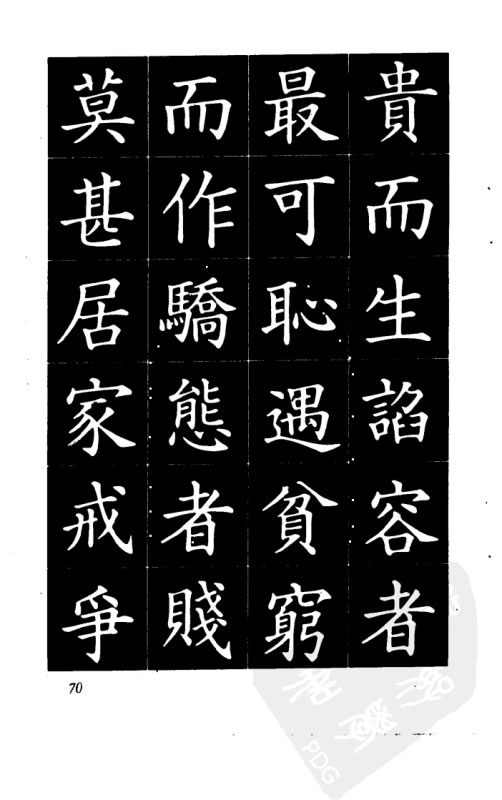 貴而生諂容者
最可恥遇貧窮
而作驕態者賤
莫甚居家戒爭
70
PDG